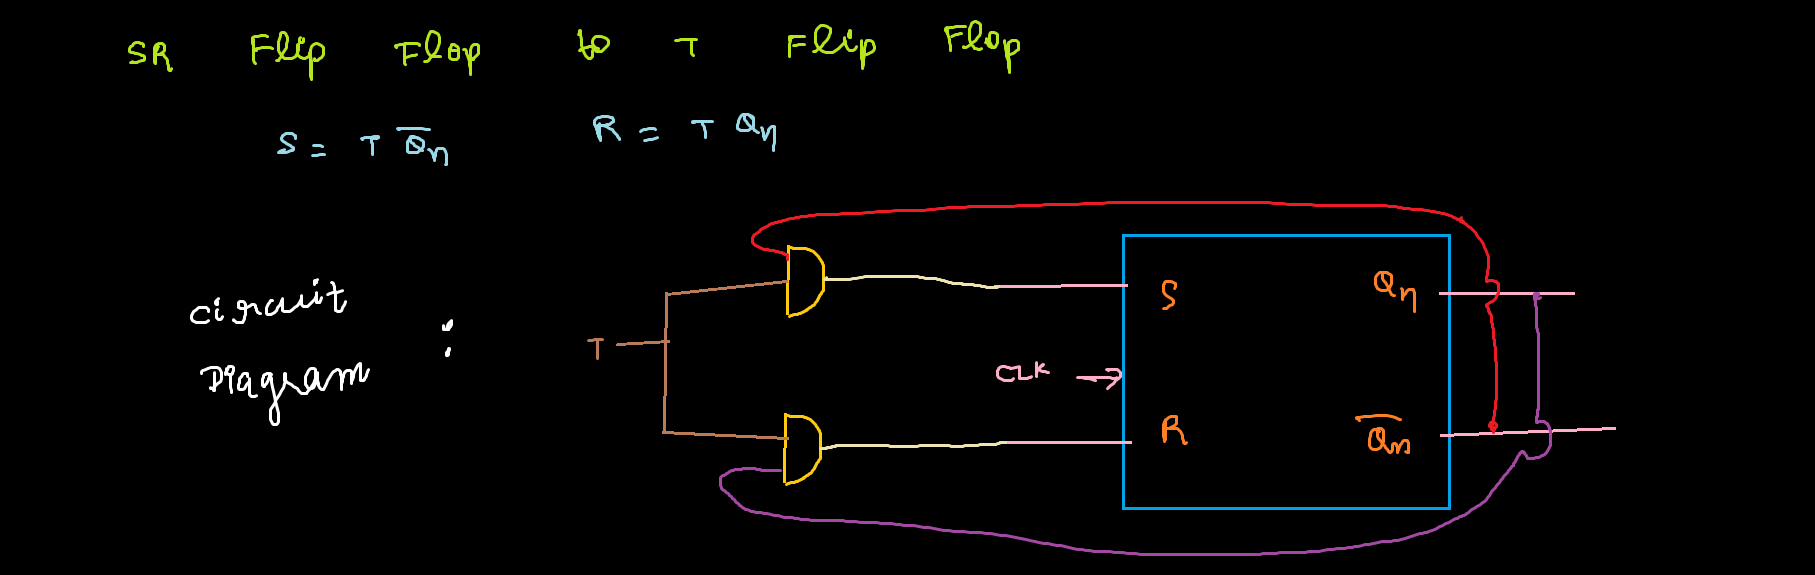 SR Flip Flop to T Flip Flop
S = T Q̅n R = T Qn
Circuit
Diagram :
T
S Qn
CLK
R Q̅n